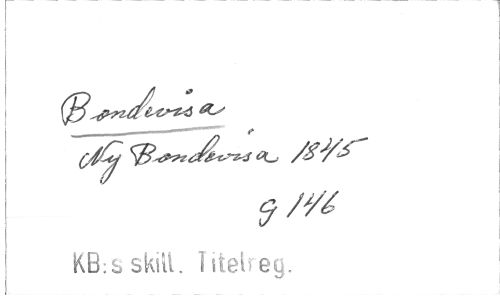 Bondevisa
Ny Bondevisa 1845
G 146
KB:s skill. Titelreg.